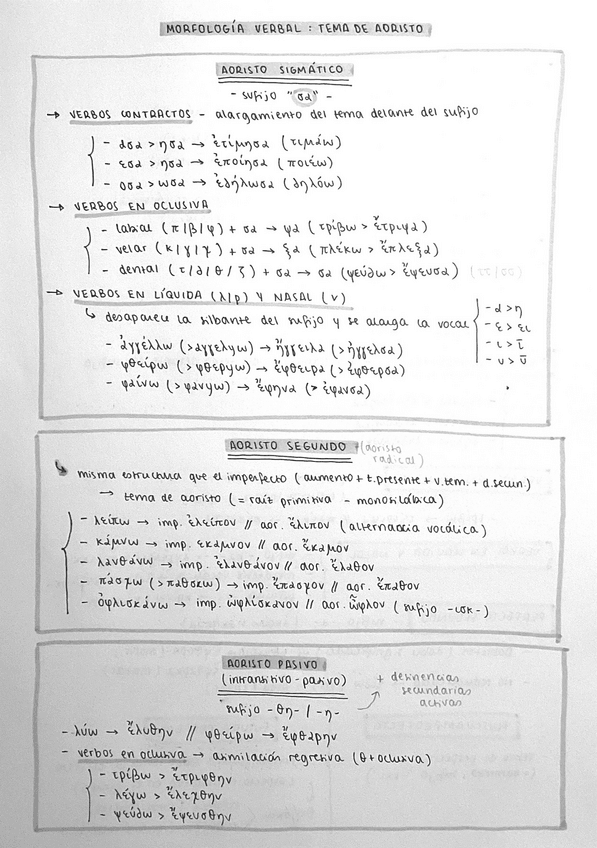 MORFOLOGÍA VERBAL : TEMA DE AORISTO
AORISTO SIGMÁTICO
- sufijo "σα" -
→ VERBOS CONTRACTOS - alargamiento del tema delante del sufijo
- ασα > ησα → ἐτίμησα (τιμάω)
- εσα > ησα → ἐποίησα (ποιέω)
- οσα > ωσα → ἐδήλωσα (δηλόω)
→ VERBOS EN OCLUSIVA
- labial (π/β/φ) + σα → ψα (τρίβω > ἔτριψα)
- velar (κ/γ/χ) + σα → ξα (πλέκω > ἔπλεξα)
- dental (τ/δ/θ/ζ) + σα → σα (ψεύδω > ἔψευσα)
→ VERBOS EN LÍQUIDA (λ/ρ) Y NASAL (ν)
↳ desaparece la silbante del sufijo y se alarga la vocal
- α > η
- ε > ει
- ι > ῑ
- υ > ῡ
- ἀγγέλλω (> αγγελyω) → ἤγγειλα (> ἠγγελσα)
- φθείρω (> φθερyω) → ἔφθειρα (> ἐφθερσα)
- φαίνω (> φανyω) → ἔφηνα (> ἐφανσα)
AORISTO SEGUNDO + (aoristo radical)
↳ misma estructura que el imperfecto (aumento + t.presente + v.tem. + d.secun.)
→ tema de aoristo (= raíz primitiva - monosilábica)
- λείπω → imp. ἐλείπον // aor. ἔλιπον (alternancia vocálica)
- κάμνω → imp. ἐκάμνον // aor. ἔκαμον
- λανθάνω → imp. ἐλανθάνον // aor. ἔλαθον
- πάσχω (> παθσκω) → imp. ἔπασχον // aor. ἔπαθον
- ὀφλισκάνω → imp. ὠφλίσκανον // aor. ὦφλον (sufijo -ισκ-)
AORISTO PASIVO
(intransitivo - pasivo)
sufijo -θη- / -η-
+ desinencias
secundarias
activas
- λύω → ἔλυθην // φθείρω → ἔφθαρην
- verbos en oclusiva → asimilación regresiva (θ + oclusiva)
- τρίβω > ἔτριφθην
- λέγω > ἔλεχθην
- ψεύδω > ἔψευσθην